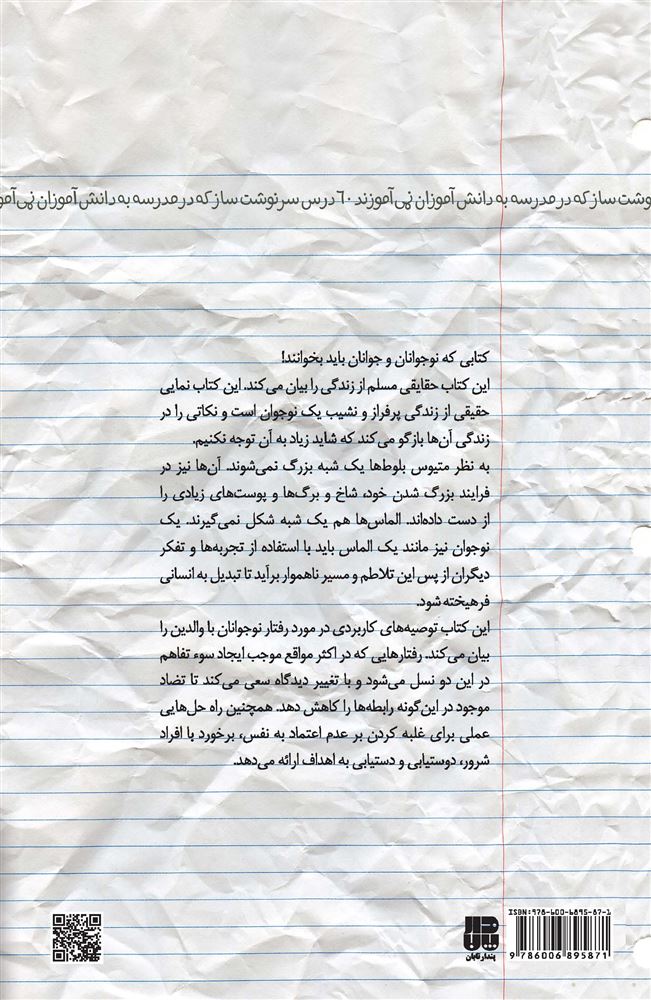 وشت ساز که در مدرسه به دانش آموزان نمی آموزند ۶۰ درس سرنوشت ساز که در مدرسه به دانش آموزان نمی آمو
کتابی که نوجوانان و جوانان باید بخوانند!
این کتاب حقایقی مسلم از زندگی را بیان می‌کند. این کتاب نمایی
حقیقی از زندگی پرفراز و نشیب یک نوجوان است و نکاتی را در
زندگی آن‌ها بازگو می‌کند که شاید زیاد به آن توجه نکنیم.
به نظر متیوس بلوط‌ها یک شبه بزرگ نمی‌شوند. آن‌ها نیز در
فرایند بزرگ شدن خود، شاخ و برگ‌ها و پوست‌های زیادی را
از دست داده‌اند. الماس‌ها هم یک شبه شکل نمی‌گیرند. یک
نوجوان نیز مانند یک الماس باید با استفاده از تجربه‌ها و تفکر
دیگران از پس این تلاطم و مسیر ناهموار برآید تا تبدیل به انسانی
فرهیخته شود.
این کتاب توصیه‌های کاربردی در مورد رفتار نوجوانان با والدین را
بیان می‌کند. رفتارهایی که در اکثر مواقع موجب ایجاد سوء تفاهم
در این دو نسل می‌شود و با تغییر دیدگاه سعی می‌کند تا تضاد
موجود در این‌گونه رابطه‌ها را کاهش دهد. همچنین راه حل‌هایی
عملی برای غلبه کردن بر عدم اعتماد به نفس، برخورد با افراد
شرور، دوستیابی و دستیابی به اهداف ارائه می‌دهد.
ISBN:978-600-6895-87-1
پندار تابان
9 786006 895871